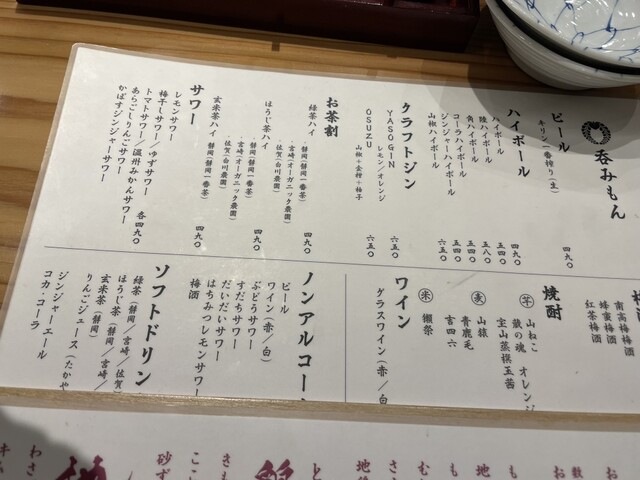 呑みもん
ビール
キリン一番搾り（生） 四九〇
ハイボール
ハイボール 四九〇
陸ハイボール 五八〇
角ハイボール 五四〇
コーラハイボール 五四〇
ジンジャーハイボール 五四〇
山椒ハイボール 六五〇
クラフトジン
YASOGIN レモン／オレンジ 六五〇
OSUZU 山椒＋金柑＋柚子 六五〇
お茶割
緑茶ハイ 四九〇
・静岡（静岡一番茶）
・宮崎（オーガニック農園）
・佐賀（白川農園）
ほうじ茶ハイ 四九〇
・静岡（静岡一番茶）
・宮崎（オーガニック農園）
・佐賀（白川農園）
玄米茶ハイ 静岡（静岡一番茶） 四九〇
サワー
レモンサワー
梅干しサワー／ゆずサワー
トマトサワー／温州みかんサワー
あらごしりんごサワー
かぼすジンジャーサワー 各四九〇
南高梅梅酒
蜂蜜梅酒
紅茶梅酒
焼酎
芋 山ねこ
蔵の魂 オレンジ
宝山蒸撰玉茜
麦 山猿
青鹿毛
吉四六
米 獺祭
ワイン
グラスワイン（赤／白
ノンアルコー
ビール
ワイン（赤／白）
ぶどうサワー
すだちサワー
だいだいサワー
はちみつレモンサワー
梅酒
ソフトドリン
緑茶（静岡／宮崎／佐賀
ほうじ茶（静岡／宮崎／
玄米茶（静岡）
りんごジュース（たかや
ジンジャーエール
コカ・コーラ